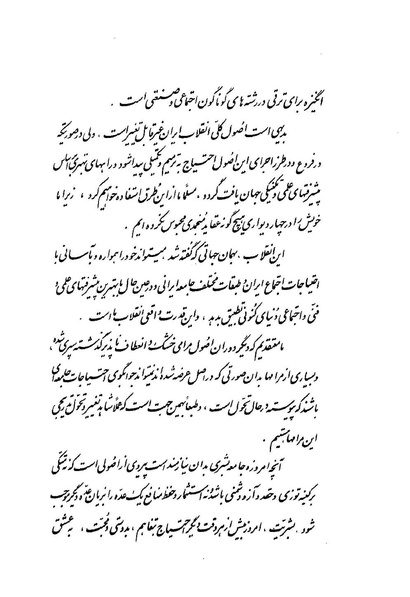 انگیزه برای ترقی در رشته های گوناگون اجتماعی و صنعتی است .
بدیهی است اصول کلی انقلاب ایران غیر قابل تغییر است ، ولی در صورتیکه
در فروع و در طرز اجرای این اصول احتیاج به ترمیم و تکمیلی پیدا شود و راههای بهتری بر اساس
پیشرفتهای علمی و تکنیکی جهان یافت گردد ، مسلما از این طرق استفاده خواهیم کرد ، زیرا ما
خویش را در چهار دیواری هیچ گونه عقاید منجمدی محبوس نکرده ایم .
این انقلاب ، بهمان جهاتی که گفته شد میتواند خود را همواره و بآسانی با
احتیاجات اجتماع ایران و طبقات مختلف جامعه ایرانی و در عین حال با بهترین پیشرفتهای علمی و
فنی و اجتماعی دنیای کنونی تطبیق بدهد ، و این قدرت واقعی انقلاب ما است .
ما معتقدیم که دیگر دوران اصول مرامی خشک و انعطاف ناپذیر گذشته سپری شده ،
و بسیاری از مرامها بدان صورتی که در اصل عرضه شده اند نمیتوانند جوابگوی احتیاجات جامعه ای
باشند که پیوسته در حال تحول است ، و طبعاً بهمین جهت است که عملا شاهد تغییر و تحول تدریجی
این مرامها هستیم .
آنچه امروزه جامعه بشری بدان نیازمند است پیروی از اصولی است که نه متکی
بر کینه توزی و حقد و آز و دشمنی باشد و نه استثمار و حفظ منافع یک عده را بزیان عده دیگر موجب
شود . بشریت ، امروز بیش از هر وقت دیگر احتیاج بتفاهم ، به دوستی و محبت ، به عشق